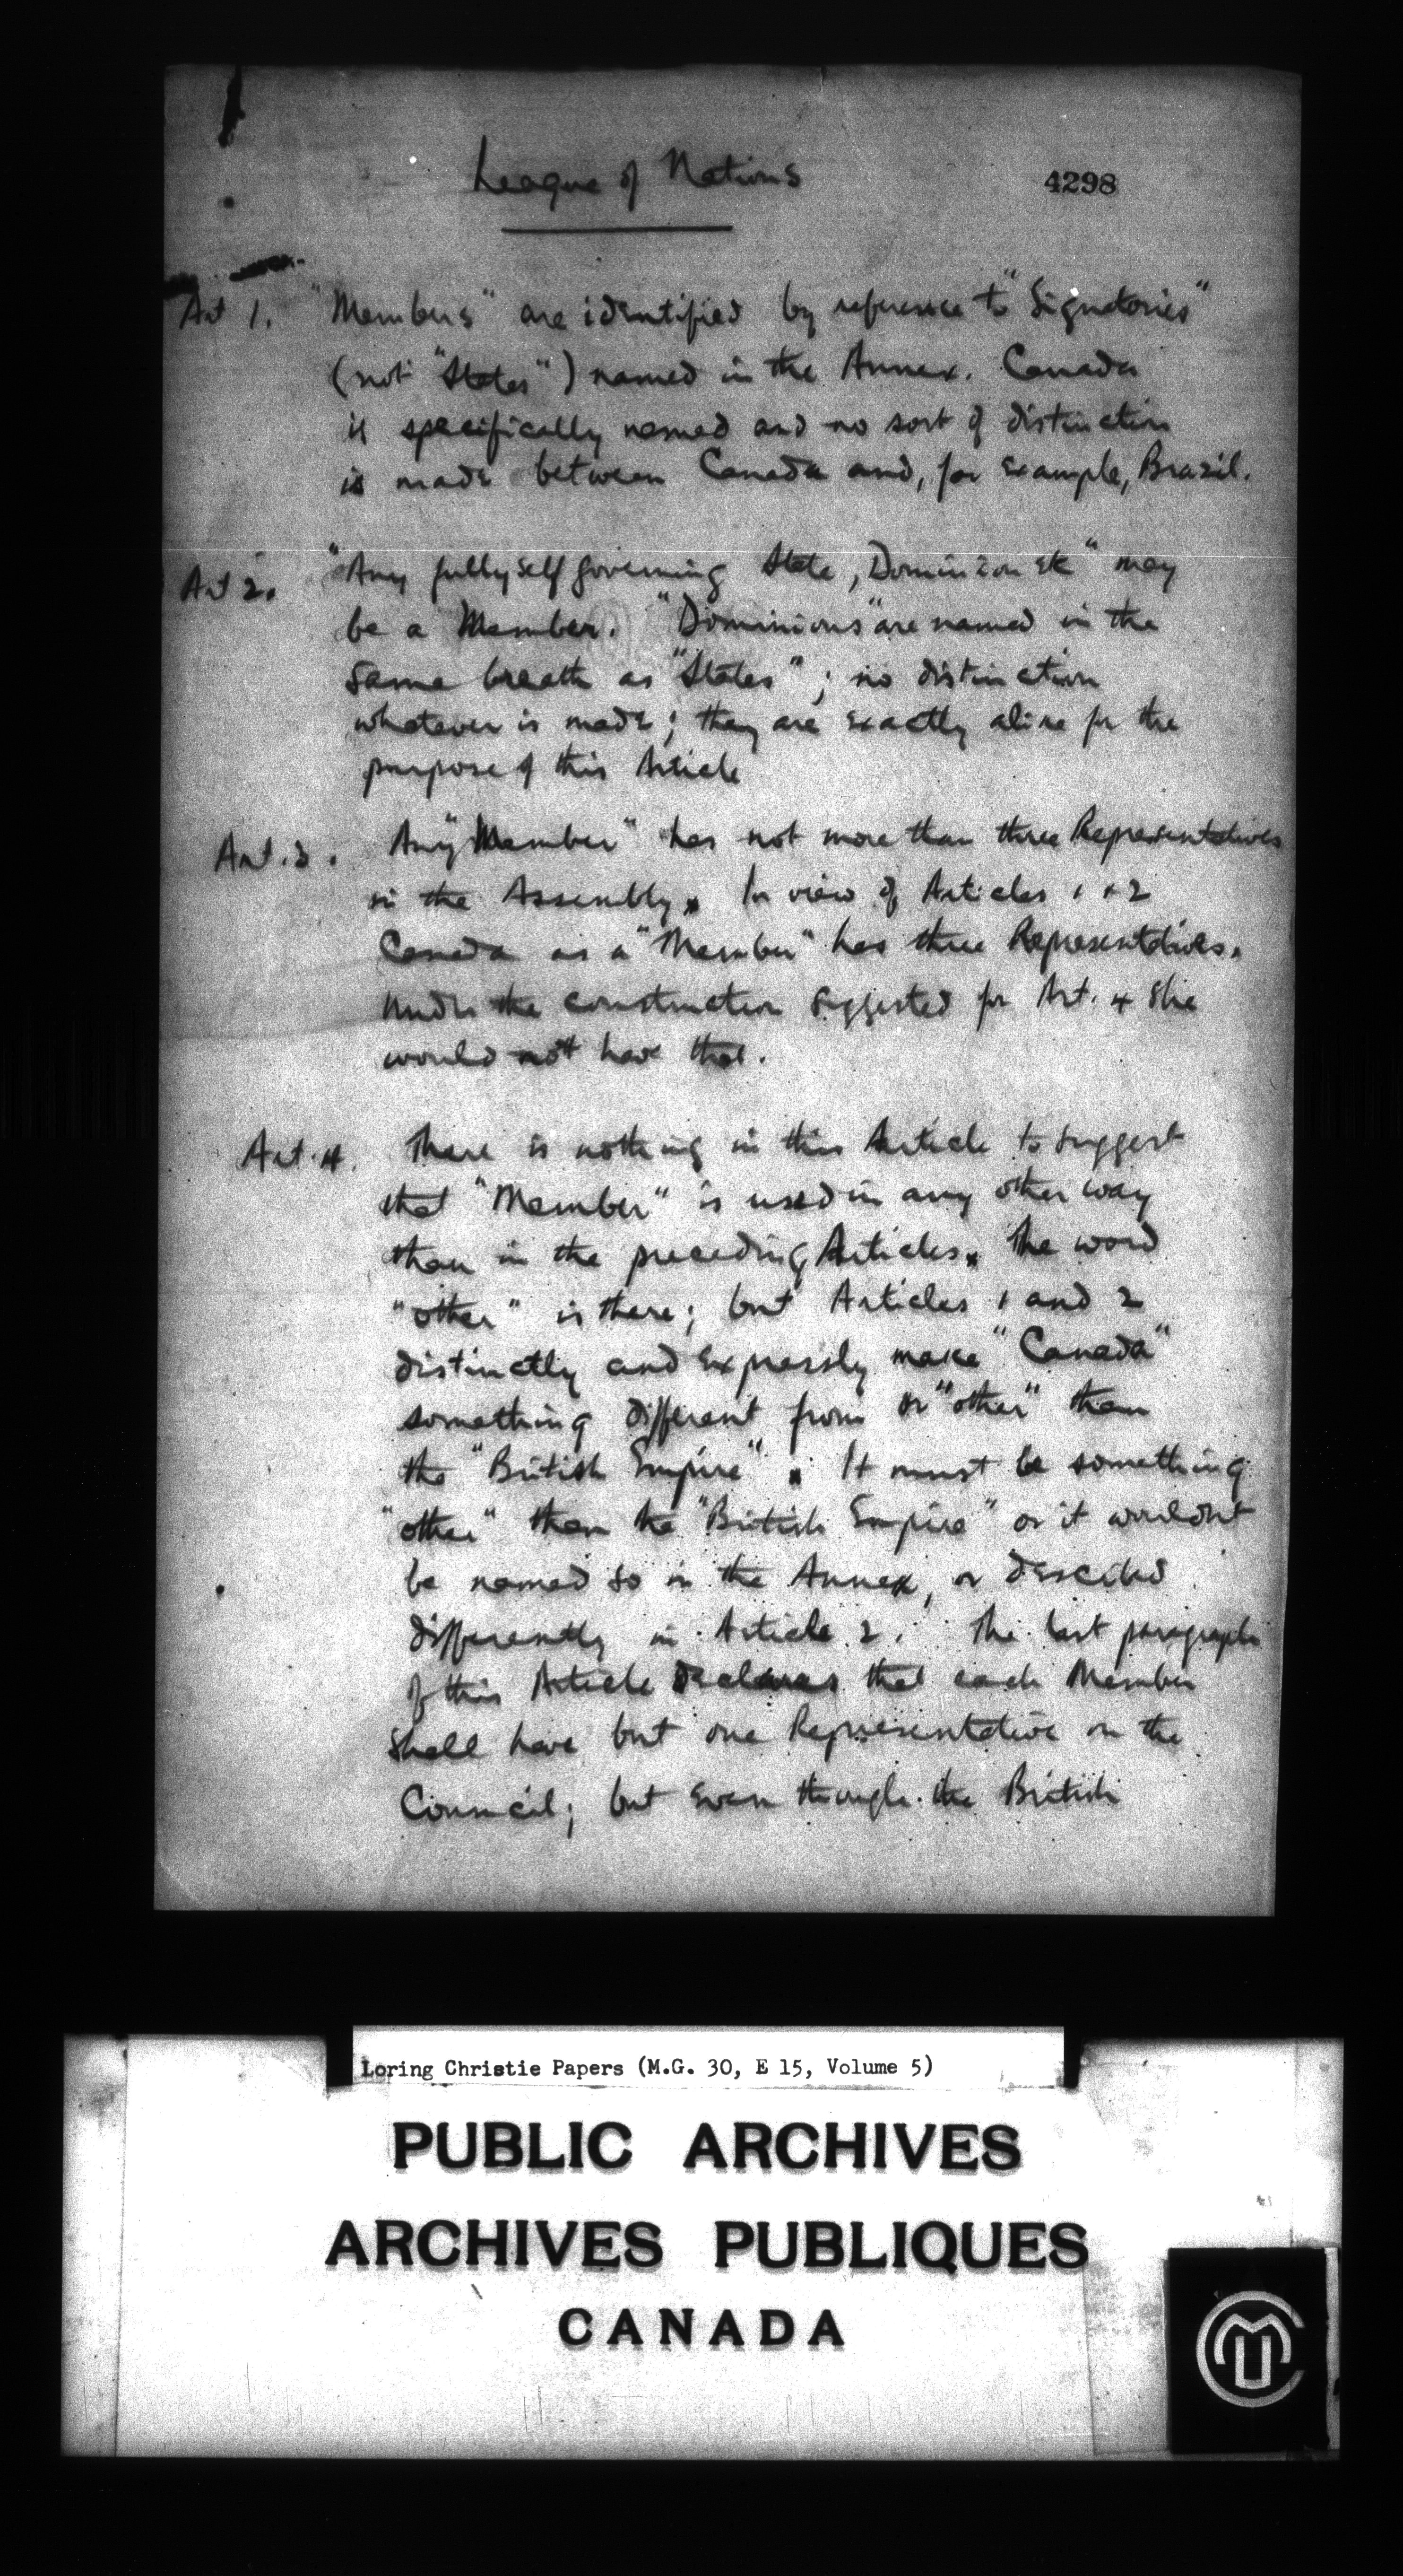 League of Nations
4298
Art 1. "Members" are identified by reference to "Signatories"
(not "States") named in the Annex. Canada
is specifically named and no sort of distinction
is made between Canada and, for example, Brazil.
Art 2. "Any fully self governing State, Dominion etc" may
be a Member. "Dominions" are named in the
same breath as "States"; no distinction
whatever is made; they are exactly alike for the
purpose of this Article
Art. 3. Any "Member" has not more than three Representatives
in the Assembly. In view of Articles 1 + 2
Canada as a "Member" has three Representatives.
Under the construction suggested for Art. 4 she
would not have that.
Art. 4. There is nothing in this Article to suggest
that "Member" is used in any other way
than in the preceding Articles. The word
"other" is there; but Articles 1 and 2
distinctly and expressly make "Canada"
something different from or "other" than
the "British Empire". It must be something
"other" than the "British Empire" or it wouldn't
be named so in the Annex, or described
differently in Article 2. The last paragraph
of this Article declares that each Member
shall have but one Representative on the
Council; but even though the British
Loring Christie Papers (M.G. 30, E 15, Volume 5)
PUBLIC ARCHIVES
ARCHIVES PUBLIQUES
CANADA